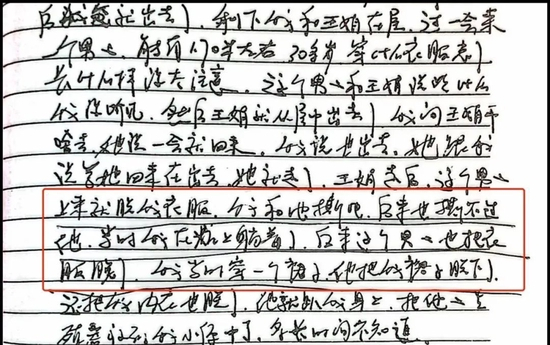 后我爸就出去了，剩下我和王娟在屋，过一会来
个男人，能有170半左右 30多岁 穿什么衣服忘了
长什么样没太注意，这个男人和王娟说些什么
我没听见，然后王娟就从屋中出去了 我问王娟干
啥去，她说一会就回来，我说也出去，她跟我
说等她回来在出去，她就走了，王娟走后，这个男人
上来就脱我衣服，我就和他撕吧，后来也撕不过
他，当时我在炕上躺着了，后来这个男人也把衣
服脱了，我当时穿一个裙子，他把我裙子脱下了，
还把我内衣也脱了，他就趴我身上，把他
多长时间不知道